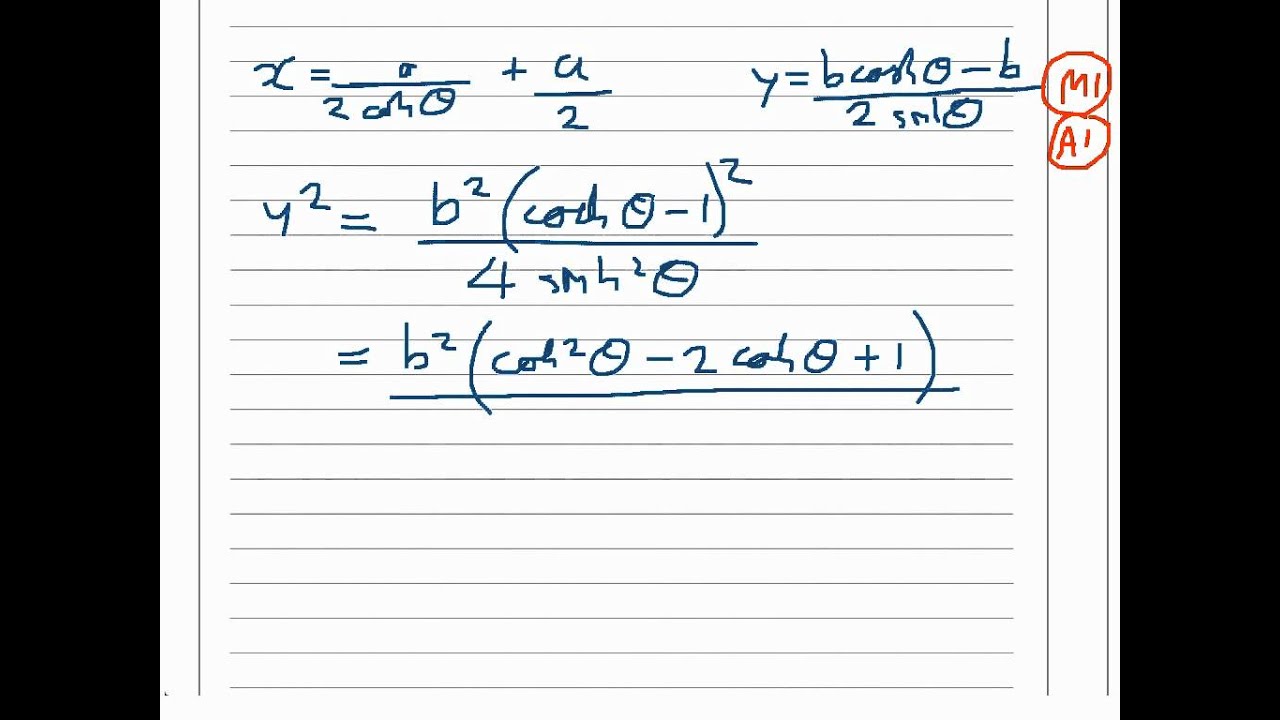 x = a/(2 cosh θ) + a/2 y = (b cosh θ − b)/(2 sinh θ) M1
A1
y² = b² (cosh θ − 1)² / (4 sinh² θ)
= b² (cosh² θ − 2 cosh θ + 1)